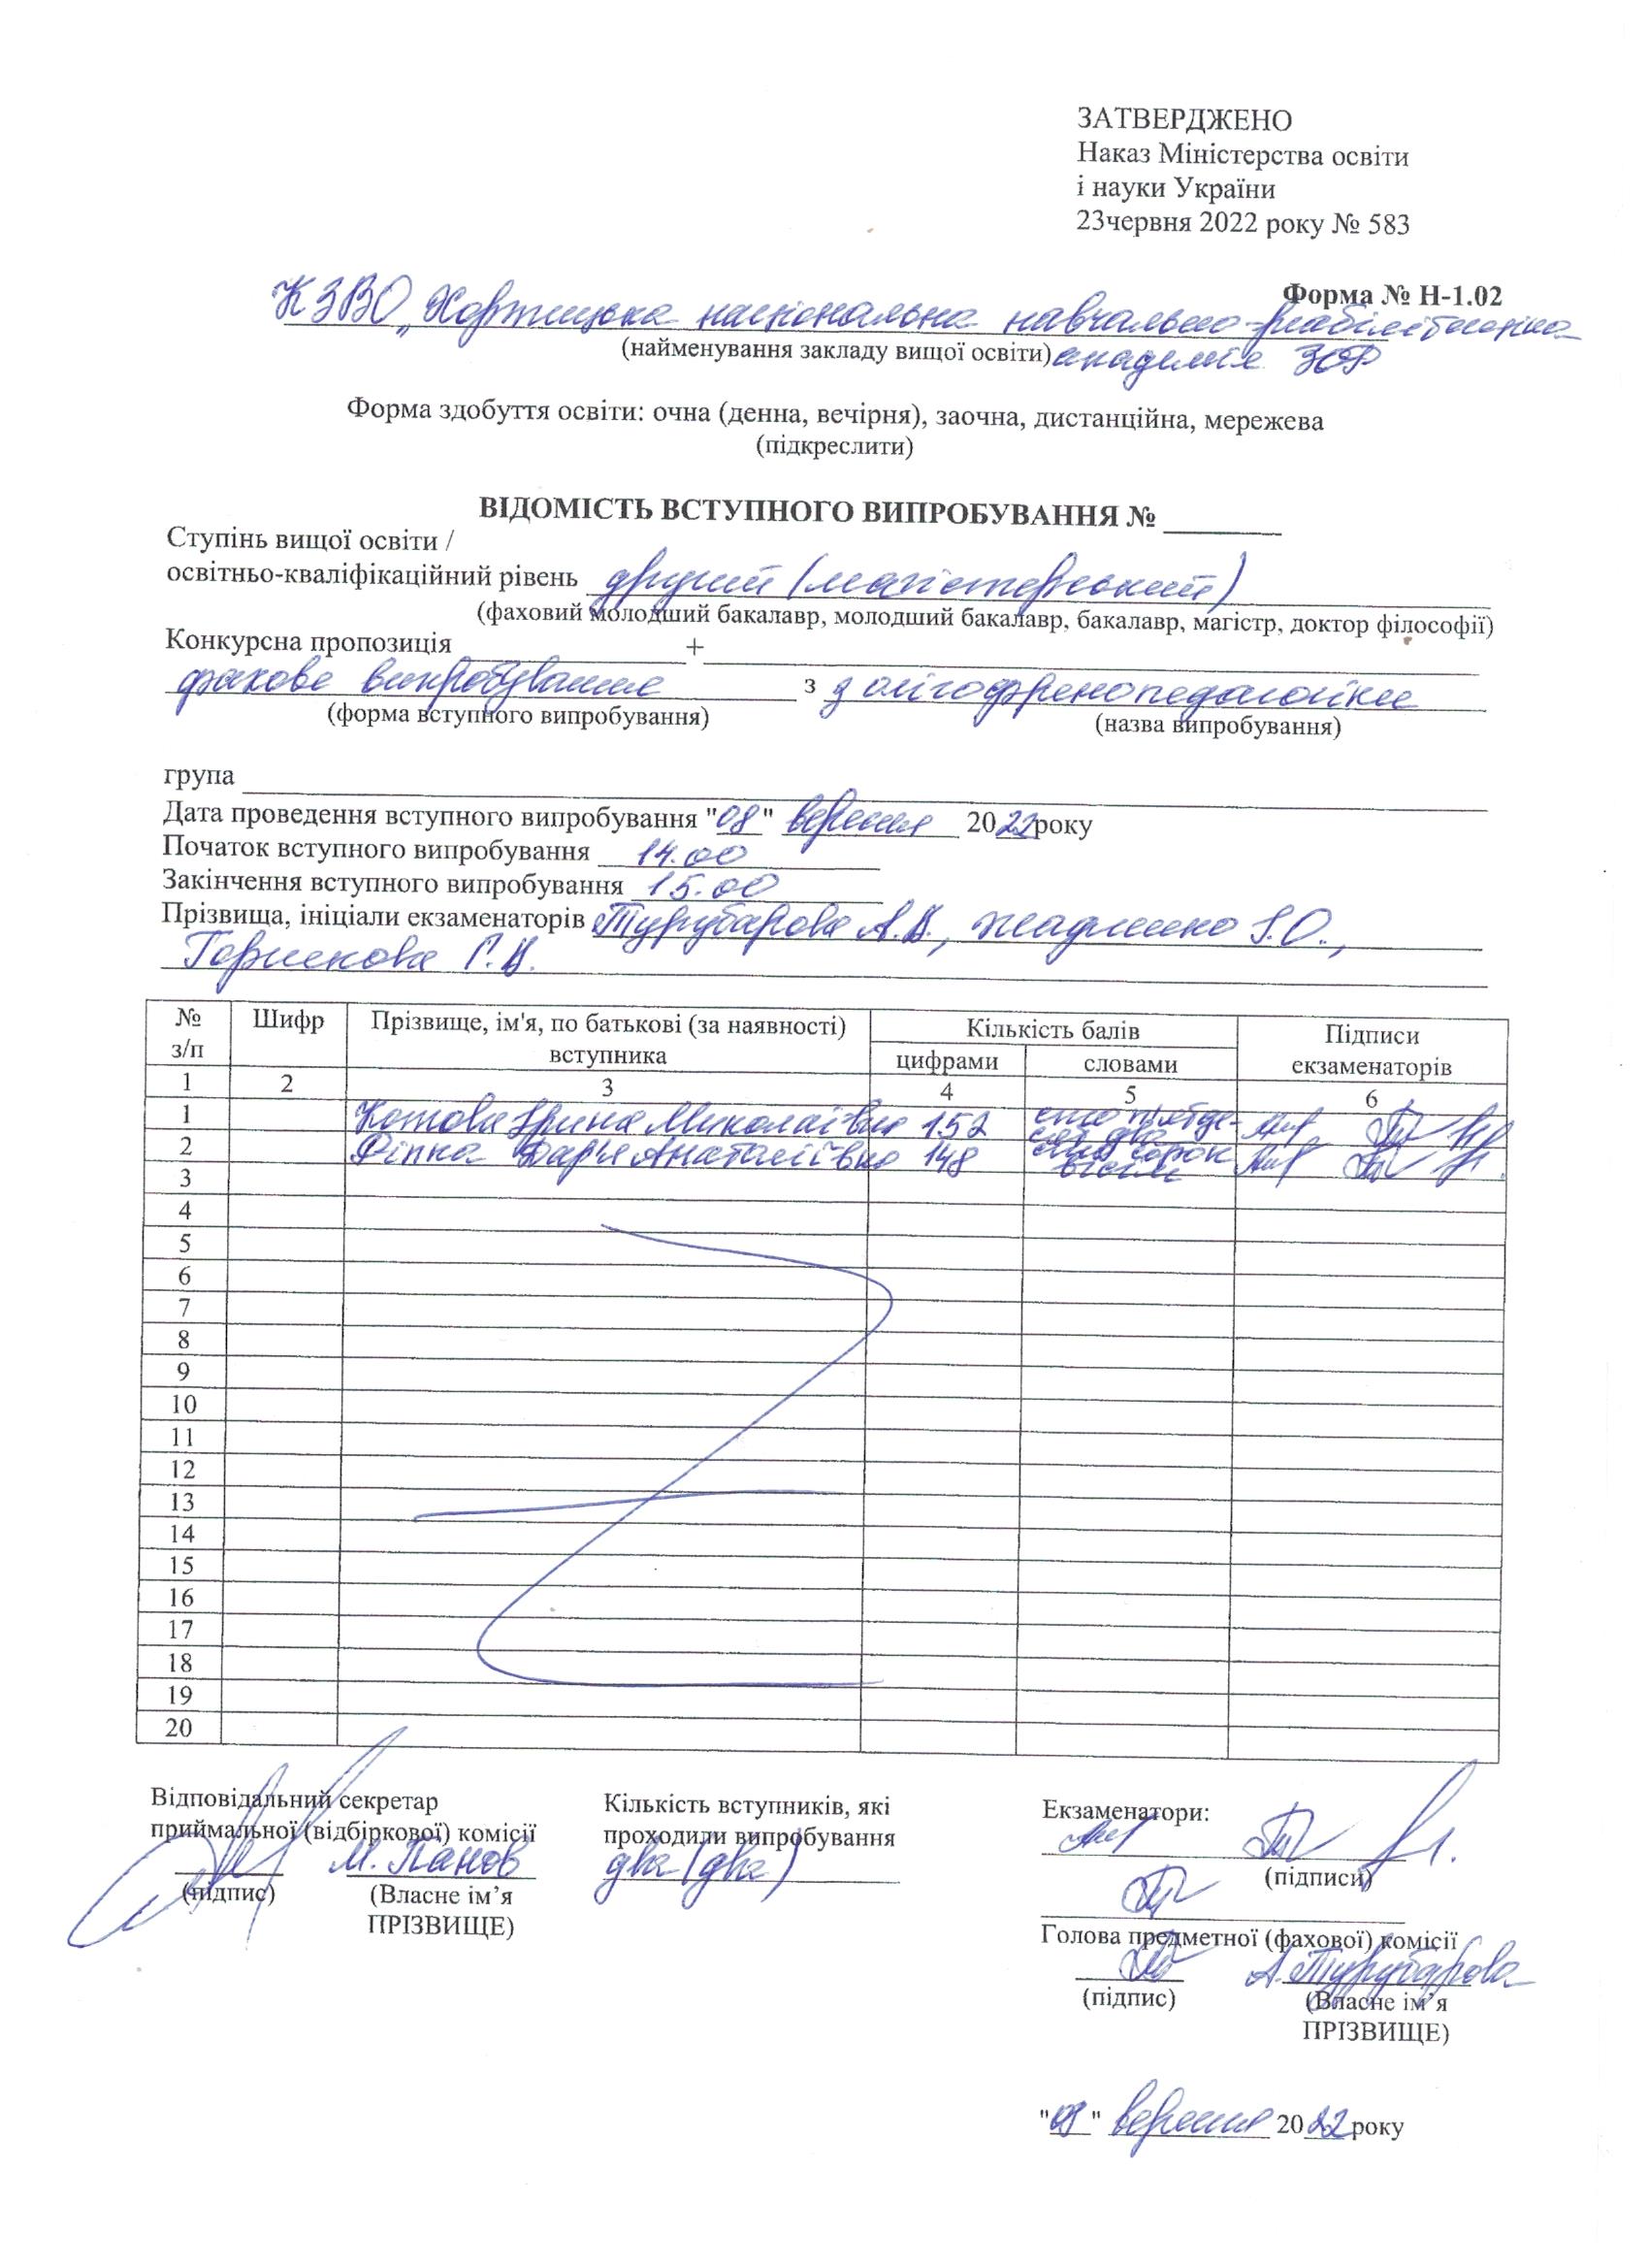 ЗАТВЕРДЖЕНО
Наказ Міністерства освіти
і науки України
23червня 2022 року № 583
Форма № Н-1.02
КЗВО „Хортицька національна навчально-реабілітаційна
(найменування закладу вищої освіти) академія ЗОР
Форма здобуття освіти: очна (денна, вечірня), заочна, дистанційна, мережева
(підкреслити)
ВІДОМІСТЬ ВСТУПНОГО ВИПРОБУВАННЯ №
Ступінь вищої освіти /
освітньо-кваліфікаційний рівень другий (магістерський)
(фаховий молодший бакалавр, молодший бакалавр, бакалавр, магістр, доктор філософії)
Конкурсна пропозиція +
фахове випробування з з олігофренопедагогіки
(форма вступного випробування) (назва випробування)
група
Дата проведення вступного випробування "08" вересня 2022року
Початок вступного випробування 14.00
Закінчення вступного випробування 15.00
Прізвища, ініціали екзаменаторів Турубарова А.В.,
Горшкова Г.В.
№ з/п Шифр Прізвище, ім'я, по батькові (за наявності) вступника Кількість балів Підписи екзаменаторів
цифрами словами
1 2 3 4 5 6
1 Котова Ірина Миколаївна 152 сто п'ятде-сят два
2 Ріпка Дар'я Анатоліївна 148 сто сорок вісім
3
4
5
6
7
8
9
10
11
12
13
14
15
16
17
18
19
20
Відповідальний секретар
приймальної (відбіркової) комісії
М. Панов
(підпис) (Власне ім’я
ПРІЗВИЩЕ)
Кількість вступників, які
проходили випробування
два (два)
Екзаменатори:
(підписи)
Голова предметної (фахової) комісії
А. Турубарова
(підпис) (Власне ім’я
ПРІЗВИЩЕ)
"08" вересня 2022року